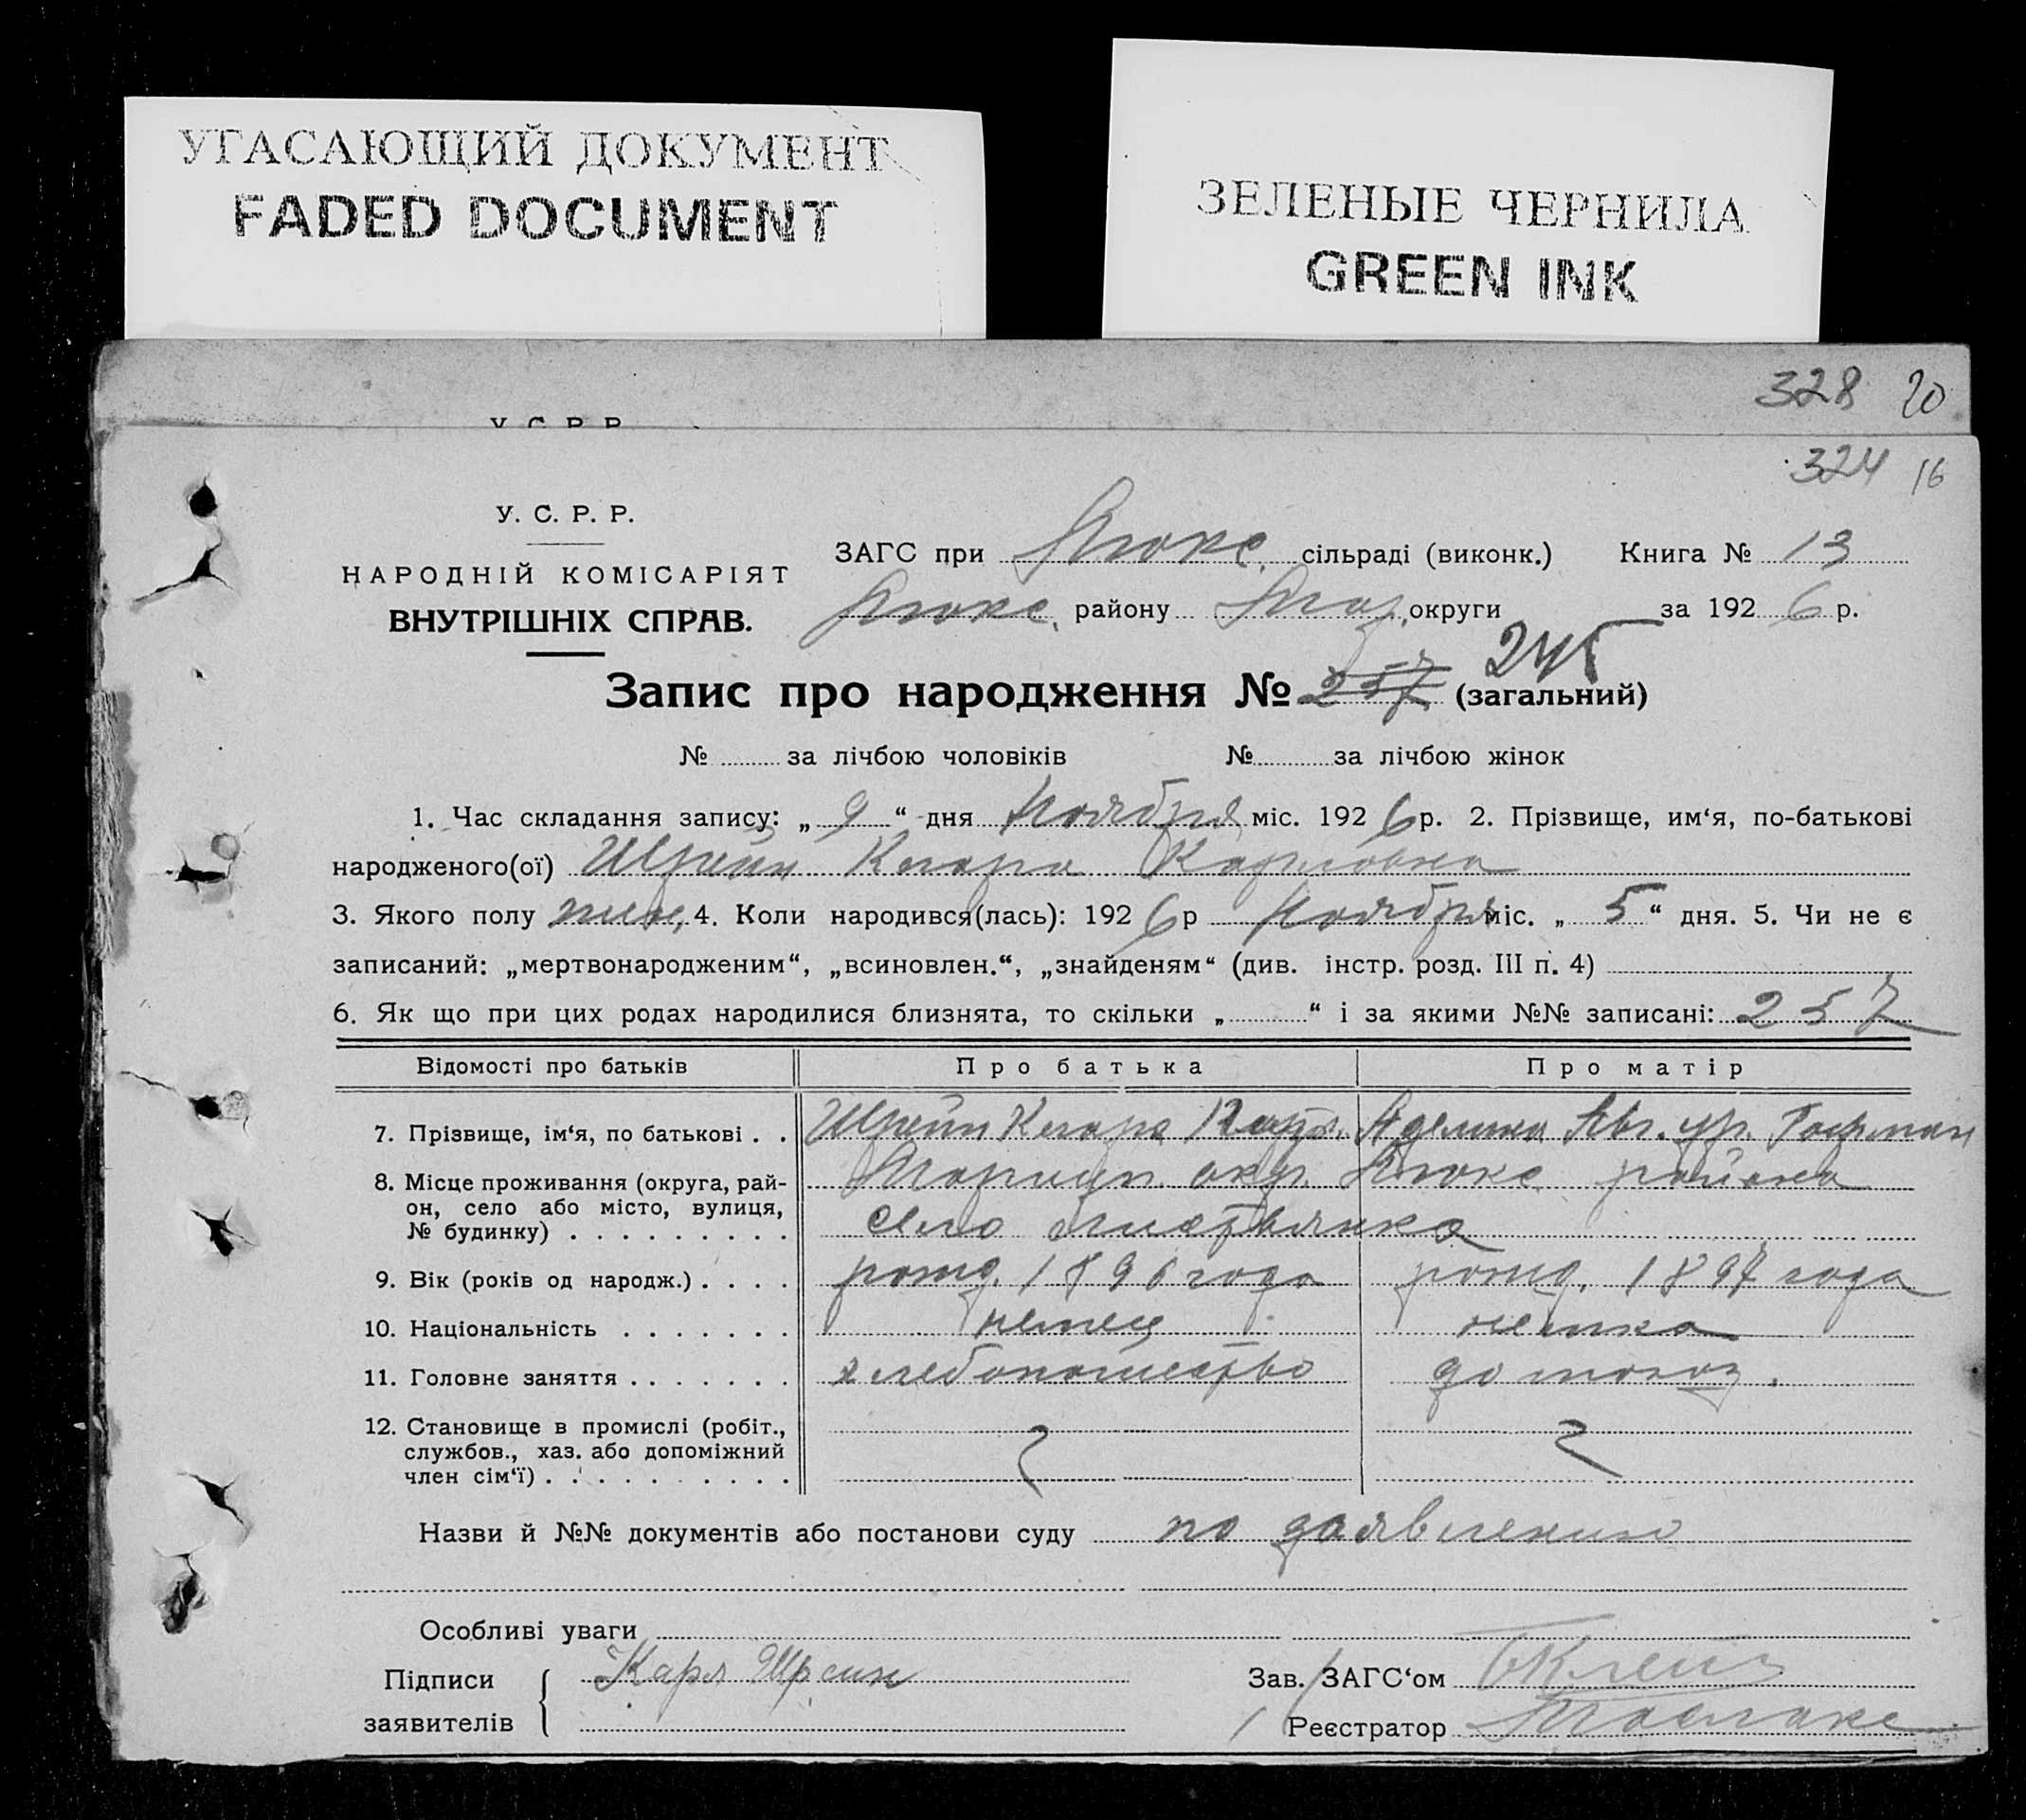 УГАСАЮЩИЙ ДОКУМЕНТ
FADED DOCUMENT
ЗЕЛЕНЫЕ ЧЕРНИЛА
GREEN INK
328 20
У. С. Р. Р.
324 16
У. С. Р. Р.
НАРОДНІЙ КОМІСАРІЯТ
ВНУТРІШНІХ СПРАВ.
ЗАГС при Люкс. сільраді (виконк.) Книга № 13
Люкс. району Мар. округи за 1926 р.
Запис про народження № 257 245 (загальний)
№ за лічбою чоловіків № за лічбою жінок
1. Час складання запису: „ 9 “ дня Ноября міс. 1926 р. 2. Прізвище, им‘я, по-батькові
народженого(ої) Шрейн Клара Карловна
3. Якого полу жен. 4. Коли народився(лась): 1926 р Ноября міс. „ 5 “ дня. 5. Чи не є
записаний: „мертвонародженим“, „всиновлен.“, „знайденям“ (див. інстр. розд. III п. 4)
6. Як що при цих родах народилися близнята, то скільки „ “ і за якими №№ записані: 257
Відомості про батьків Про батька Про матір
7. Прізвище, ім‘я, по батькові . . Шрейн Карл. Аделина Авг. ур. Гофман
8. Місце проживання (округа, рай-
он, село або місто, вулиця,
№ будинку) . . . . . . . . . Мариуп. окр. Люкс. района
село Листвянка
9. Вік (років од народж.) . . . . рожд. 1896 года рожд. 1897 года
10. Національність . . . . . . . немец немка
11. Головне заняття . . . . . . . хлебопашество домохоз.
12. Становище в промислі (робіт.,
службов., хаз. або допоміжний
член сім‘ї) . . . . . . . . . .
Назви й №№ документів або постанови суду по заявлению
Особливі уваги
Підписи
заявителів
Карл Шреин
Зав. ЗАГС‘ом
Реєстратор